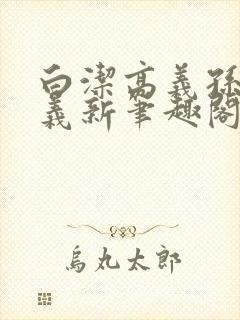 白潔高義孫
義新筆趣閣
烏丸太郎